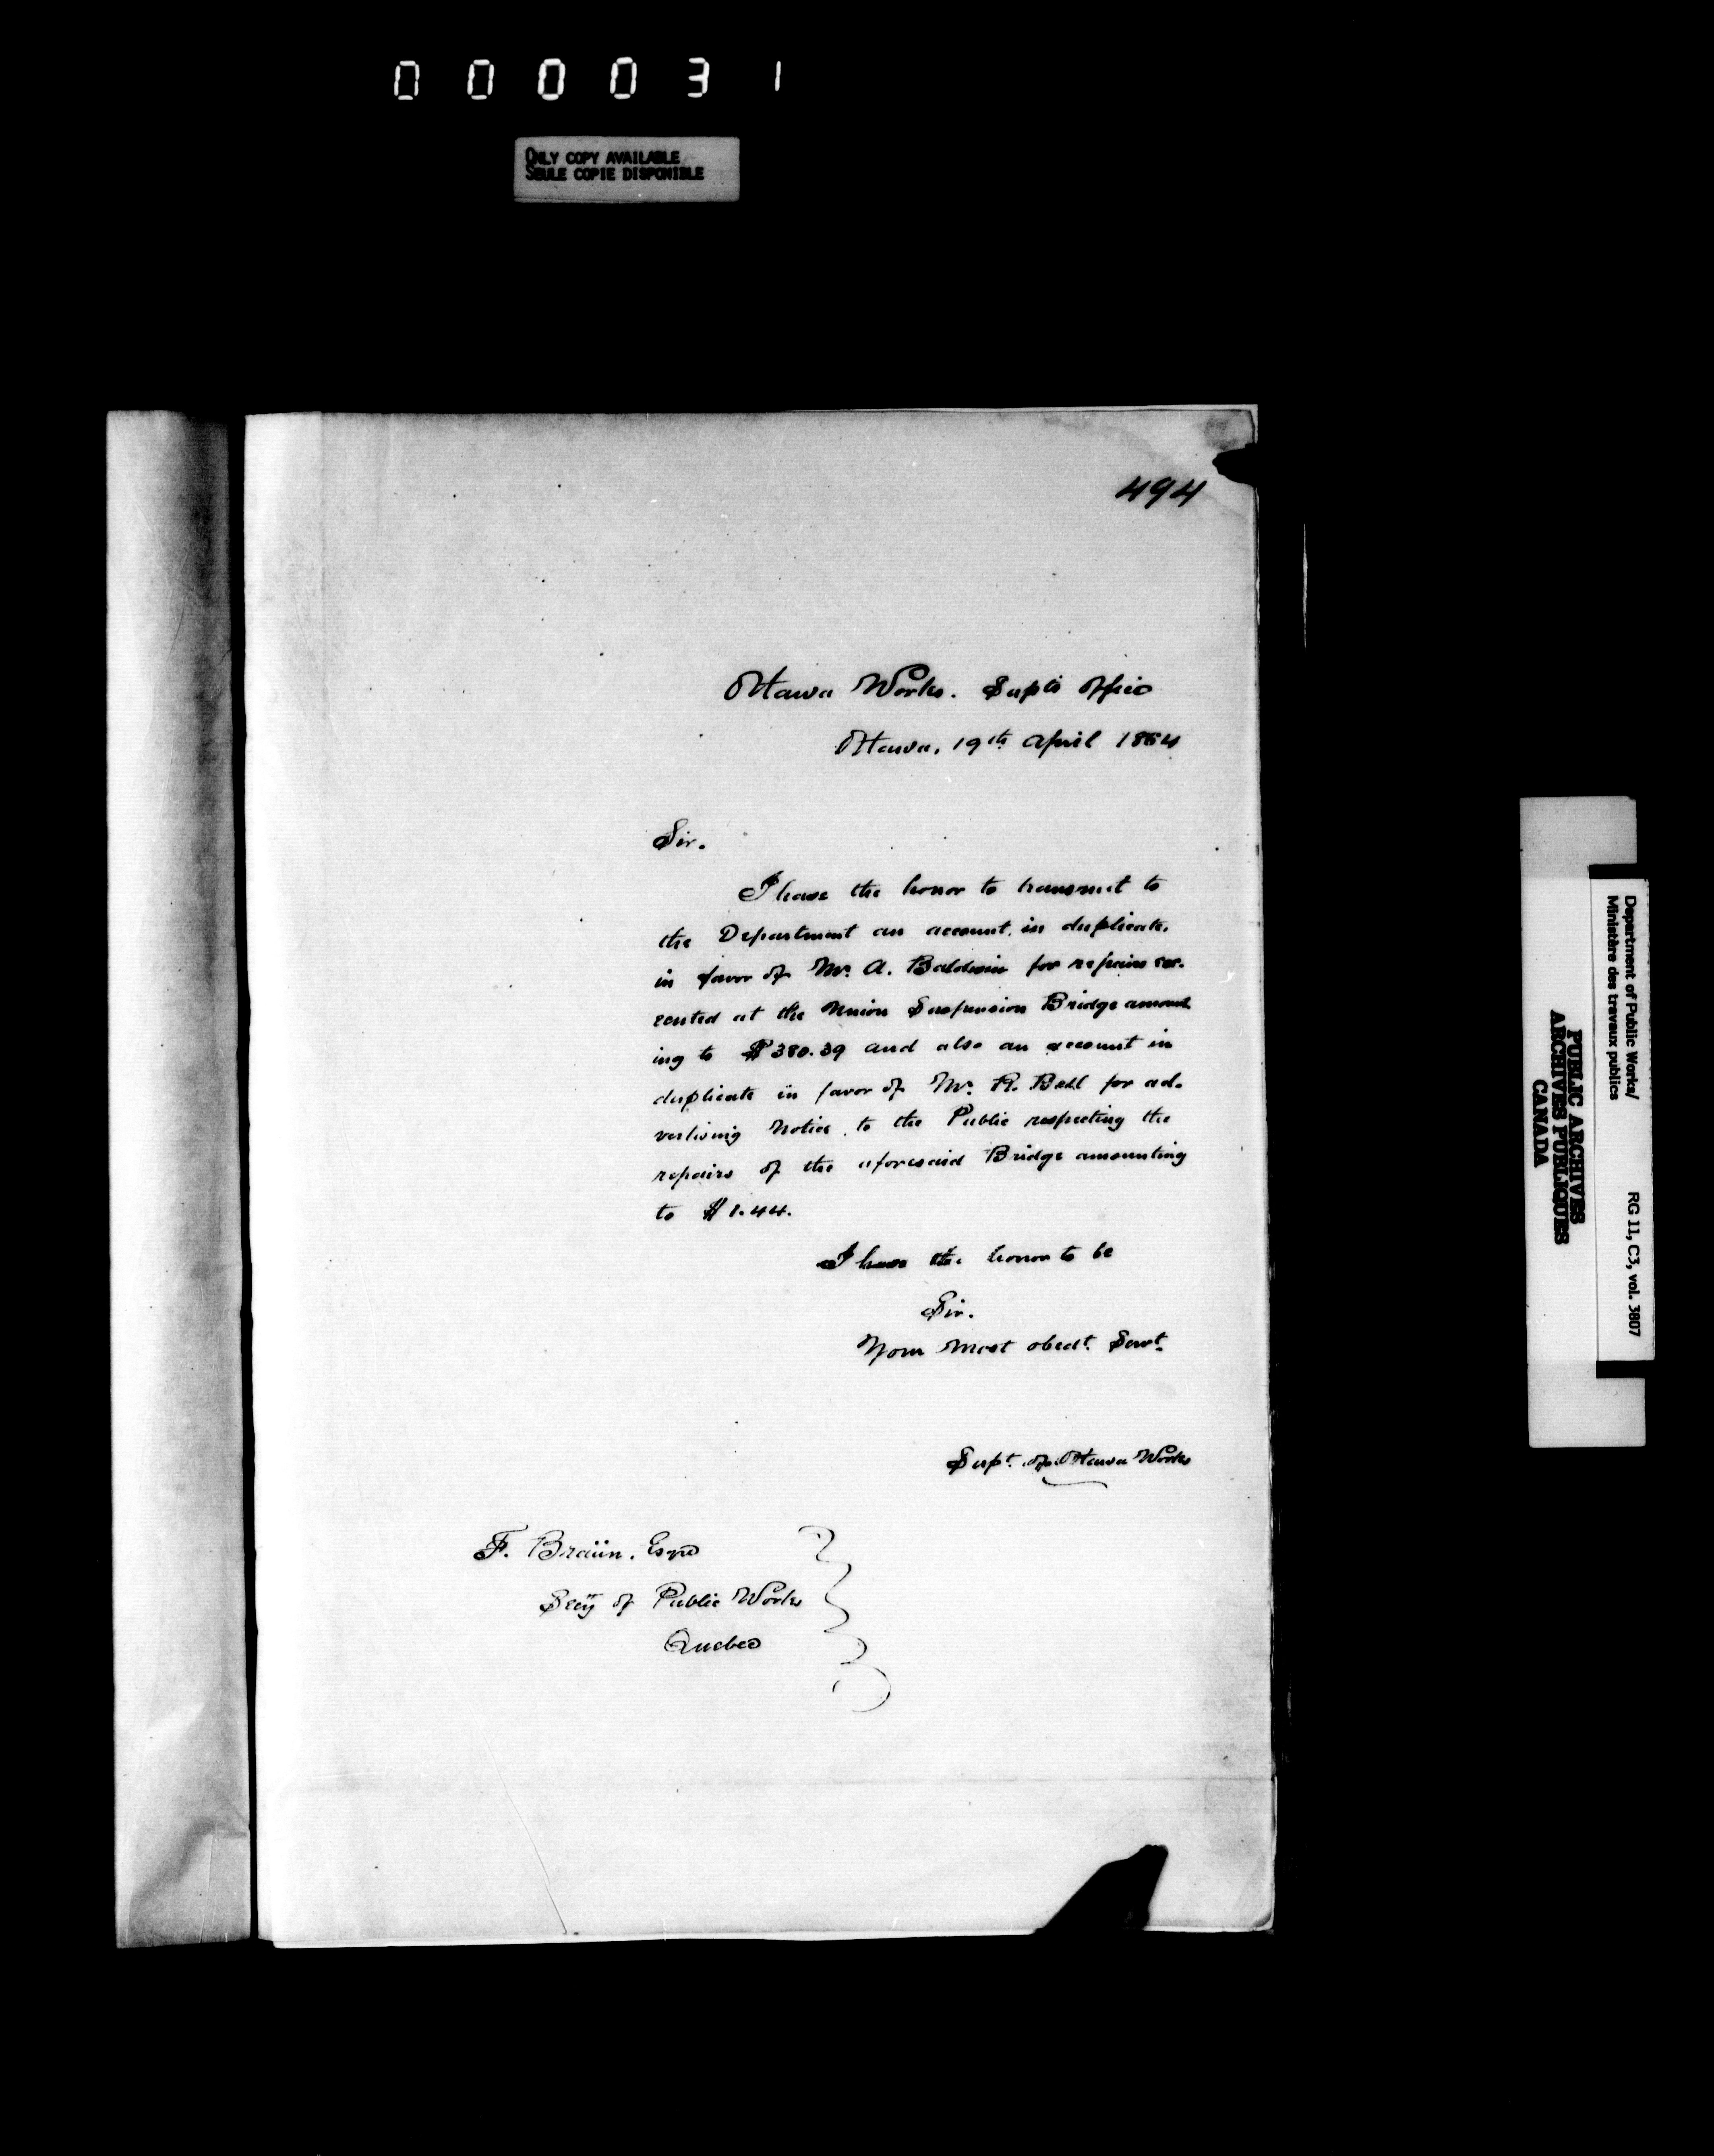 000031
ONLY COPY AVAILABLE
SEULE COPIE DISPONIBLE
494
Ottawa Works. Supt's Office
Ottawa, 19th April 1864
Sir.
I have the honor to transmit to
the Department an account, in duplicate,
in favor of Mr. A. Baldwin for repairs exe-
cuted at the Union Suspension Bridge amount
ing to $380.39 and also an account in
duplicate in favor of Mr. R. Bell for ad-
vertising Notice to the Public respecting the
repairs of the aforesaid Bridge amounting
to $1.44.
I have the honor to be
Sir.
Your most obedt. Servt.
Supt. of Ottawa Works
F. Braün, Esqre
Secy of Public Works
Quebec
Department of Public Works/
Ministère des travaux publics
RG 11, C3, vol. 3807
PUBLIC ARCHIVES
ARCHIVES PUBLIQUES
CANADA